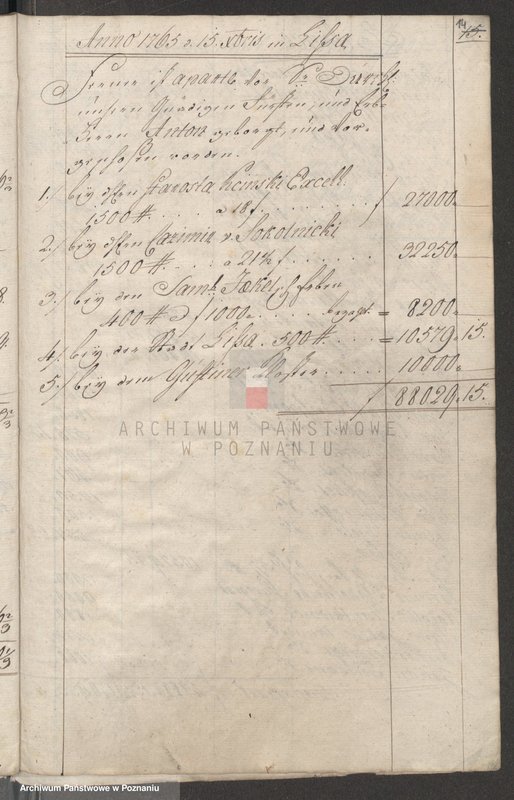 14
15.
Anno 1765 d. 15. Xbris in Lissa
Ferner ist aparte vor Sr Durchl.
unsern Gnädigen Fürsten, und Erb-
Herrn Anton geborgt, und vor-
geschossen worden.
1./ bey Starosta Excell.
1500 # . . . . a 18 f. . . . . . . . f 27000.
2./ bey Casimir v. Sokolnicki
1500 # . . . . a 21½ f. . . . . . . 32250.
3./ bey den Saml. Jäkel. Erben
400 # f 1000. . . . bezahlt. = 8200.
4./ bey der Stadt Lissa. 500 # . . . . = 10579. 15.
5./ bey dem Kloster . . . . . 10000.
f 88029. 15.
ARCHIWUM PAŃSTWOWE
W POZNANIU
Archiwum Państwowe w Poznaniu